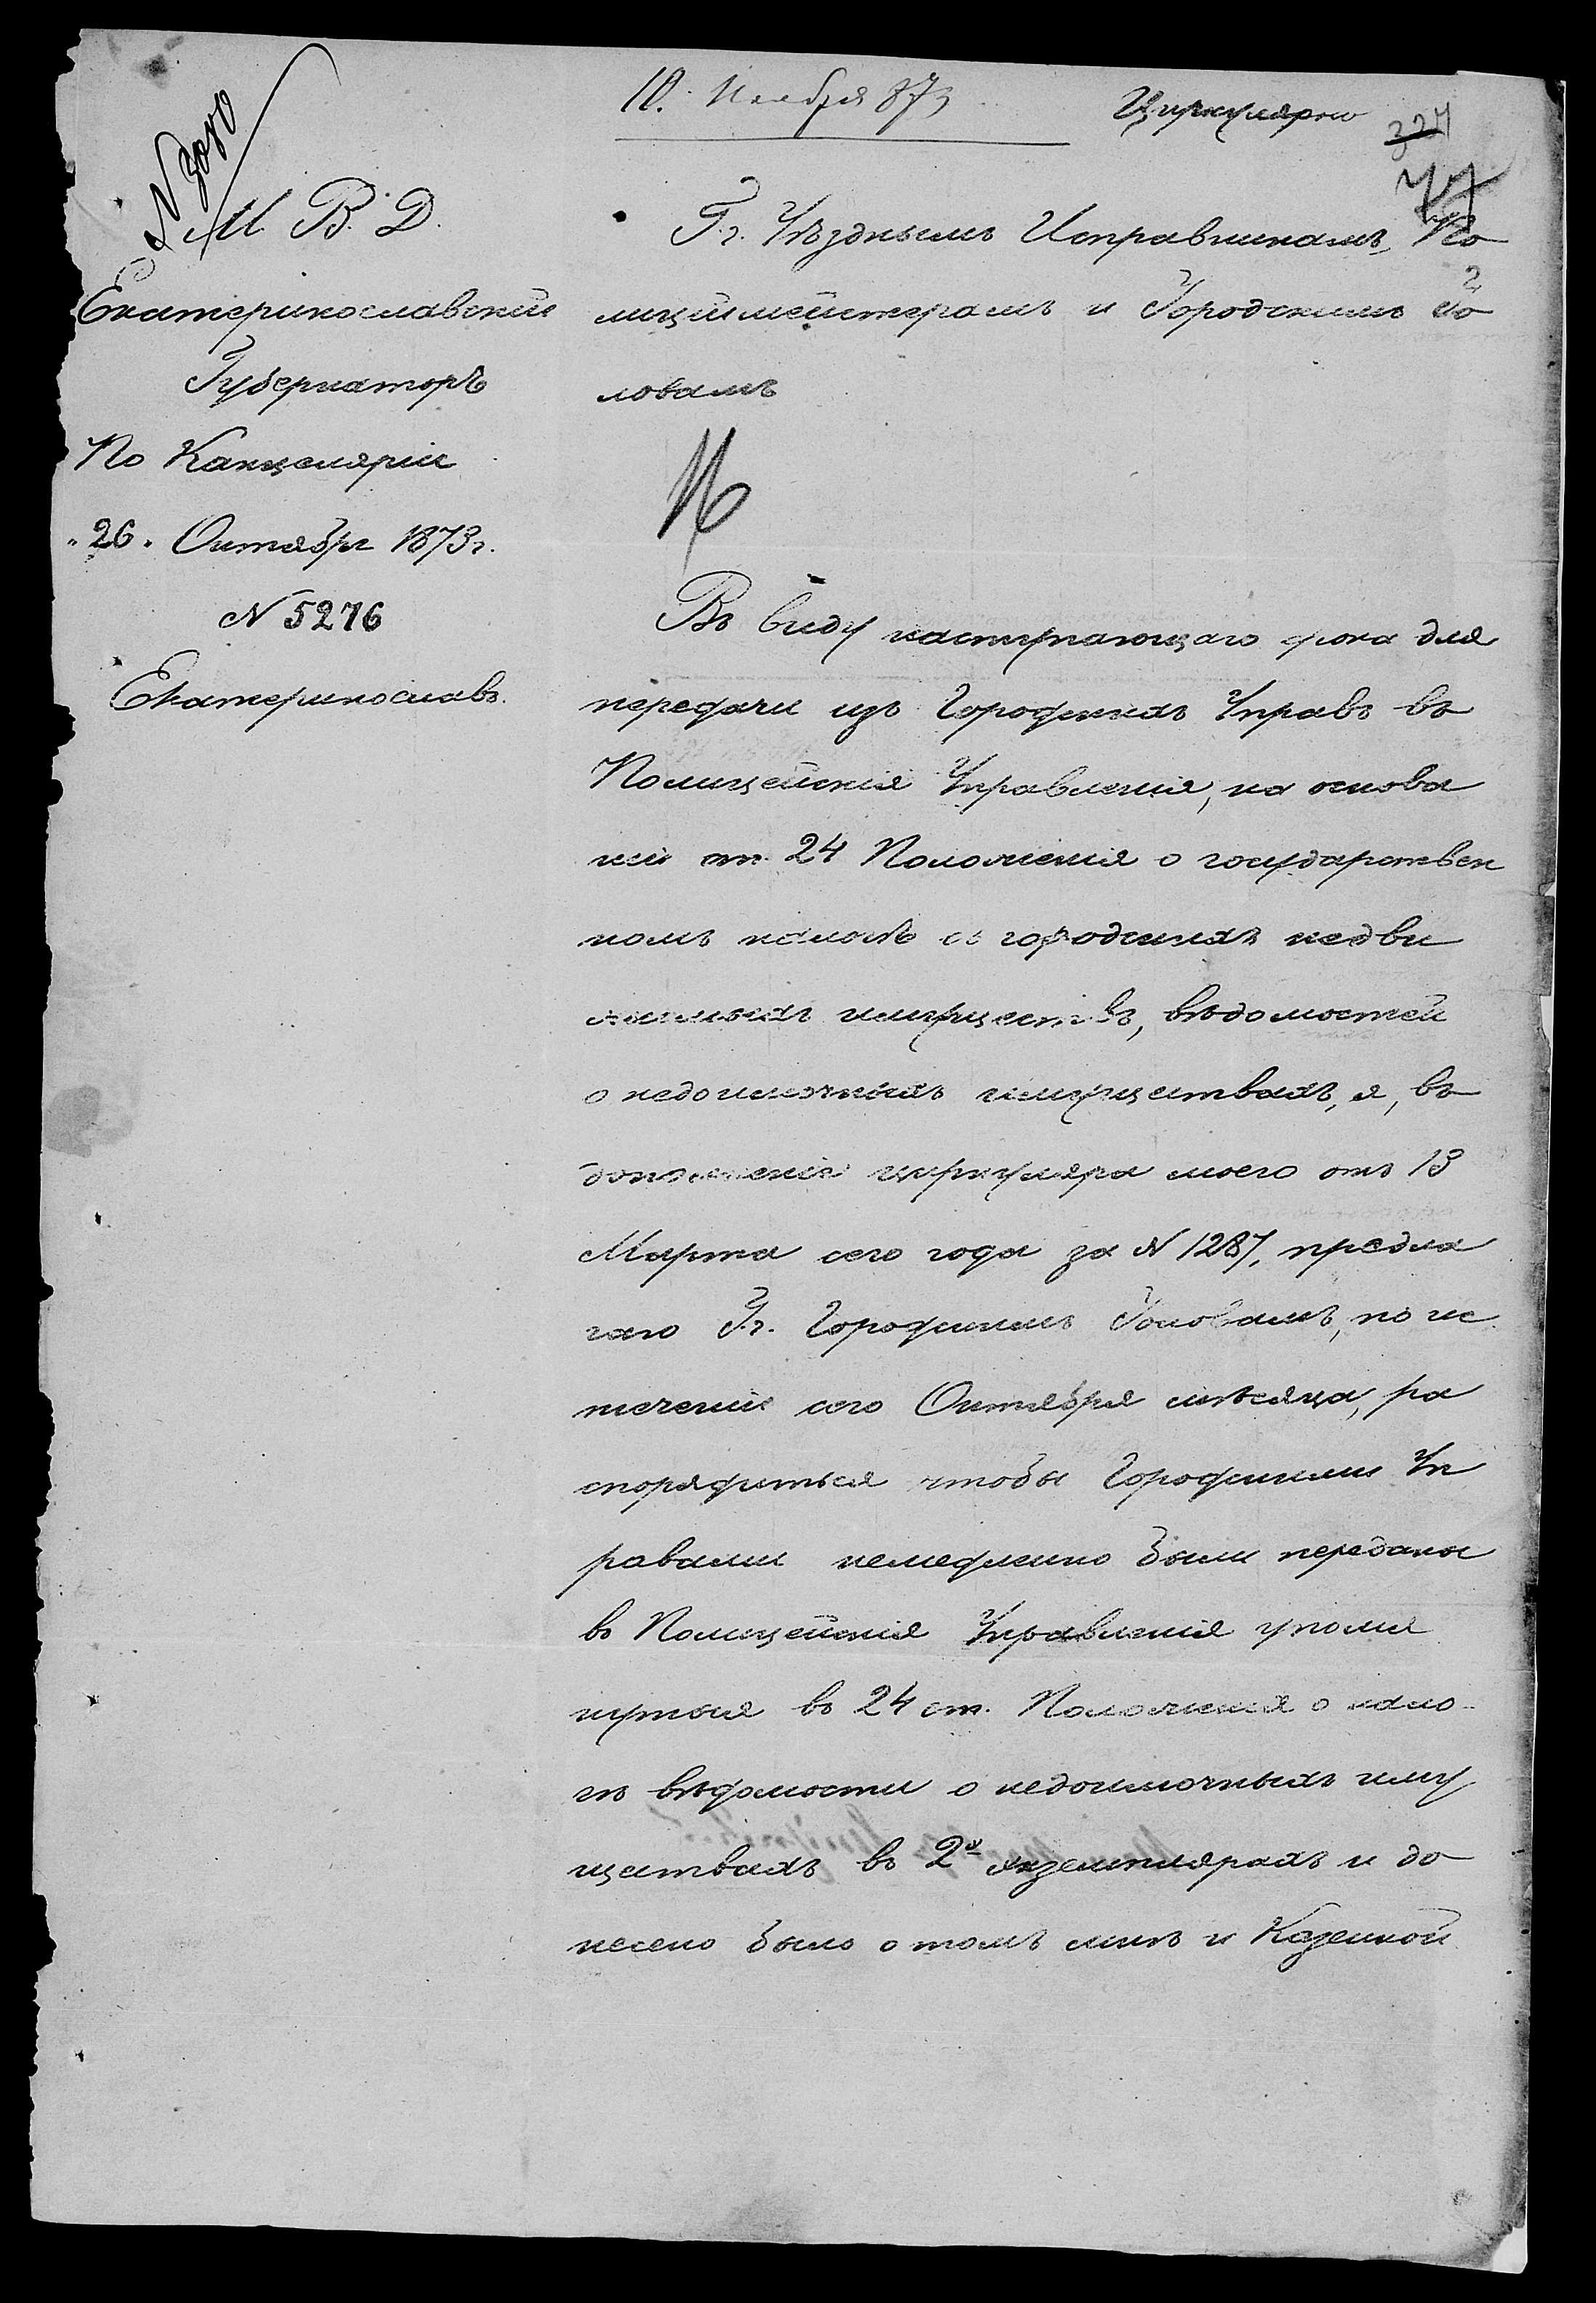 10. Ноября 873
Циркулярно
324
77
N 3080
М. В. Д.
Екатеринославскій
Губернаторъ
По Канцеляріи
"26" Октября 1873 г.
N 5276
Екатеринославъ.
Г.г. Уѣзднымъ Исправникамъ, По
лиціймейстерамъ и Городскимъ Го
ловамъ
Въ виду наступающаго срока для
передачи изъ Городскихъ Управъ въ
Полицейскія Управленія, на основа
ніи ст. 24 Положенія о государствен
номъ налогѣ съ городскихъ недви
жимыхъ имуществъ, вѣдомостей
о недоимочныхъ имуществахъ, я, въ
дополненіе циркуляра моего отъ 13
Марта сего года за N 1287, предла
гаю Г.г. Городскимъ Головамъ, по ис
теченіи сего Октября мѣсяца, ра
спорядиться чтобы Городскими Уп
равами немедленно были переданы
въ Полицейскія Управленія упомя
нутыя въ 24 ст. Положенія о нало-
гѣ вѣдомости о недоимочныхъ иму
ществахъ въ 2х экземплярахъ и до
несено было о томъ мнѣ и Казенной